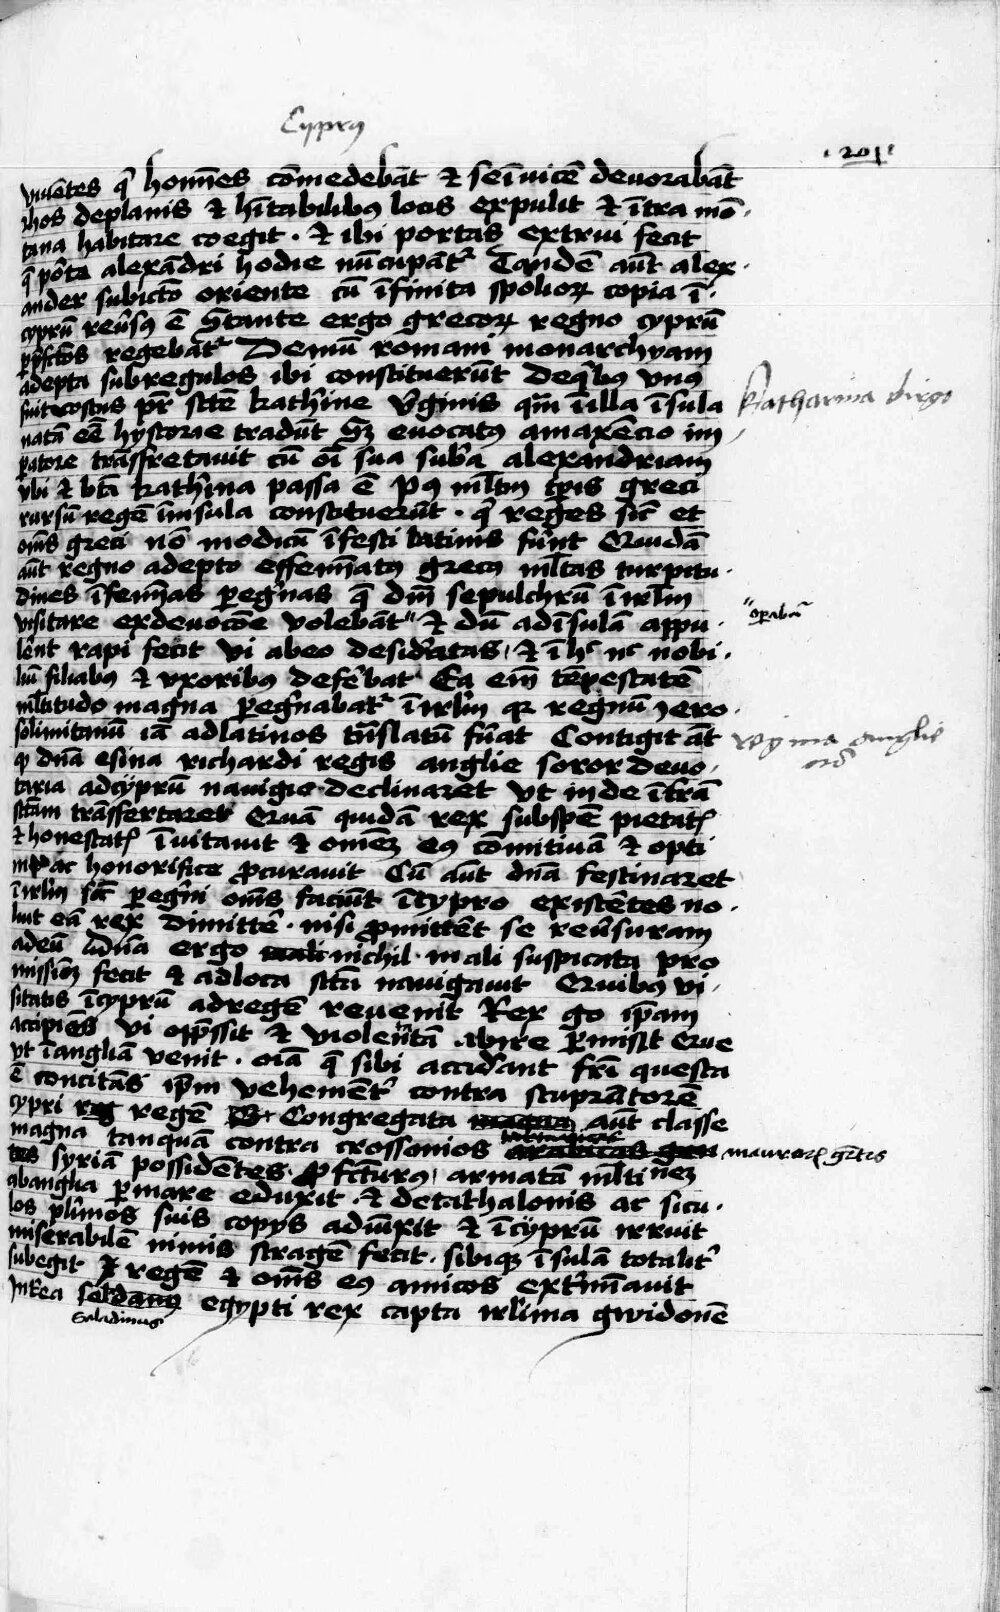 Cyprus
201
viuētes q̄ homīes cōmedebāt & seīuicē deuorabāt
hos deplanis & hītabilibꝰ locis expulit & ītra mō
tana habitare coegit · & ibi portas extrui fecit
q̄ pōrta alexādri hodie nūcupātr̄ Tandē aūt alex
ander subiecto oriente cū īfinita spolioꝝ copia ī
cyprū reūsꝰ ē Stante ergo grecoꝝ regno cyprū
p̄fctōs regebātr̄ Demū romani monarchyam
adepta subregulos ibi constituerūt Deqībꝰ vnꝰ
fuit costus pr̄ scte kathīne v̄ginis qm̄ ī illa īsula
Katharina virgo
natā eē hystorie tradūt Sꝫ euocatꝰ amaxēcio im
patore trāsfretauit cū oī sua suba alexandriam
vbi & btā kathīna passa ē Pꝰ mltm̄ tp̄is greci
rursū regē īinsula constituerūt · q̄ reges sic et
oms greci nō modicū īfesti latinis fūnt Quidā
aūt regno adepto effemīatꝰ grecꝰ mltas turpitu
dines īfemīas peḡnas q̄ dm̄ sepulchrū ī irlm̄
visitare exdeuocōe volebāt" & dū adīsulā appu
"oꝑabat̄
lēnt rapi fecit vi abeo desidatas / & ī hͨ nͨ nobi
liū filiabꝰ & vxoribꝰ defēbat Ea em̄ tēpestatē
mltitudo magna peḡnabatr̄ ī irlm̄ qꝛ regnū iero
solimitanū iā adlatinos trāslatū fūat Contigit āt
regina anglie
qꝫ dnā esina richardi regis anglie soror deuo
taria adcyprū nauigie declinaret vt inde ītrā
sctam trāsfertaret Quā quidā rex subspē pietatꝭ
& honestatꝭ īuitauit & omēꝫ eꝰ cōmitiuā & opti
me ac honorifice ꝓcurauit Cū aūt dnā festinaret
ī irlm sic̄ peḡini oms faciūt ī cypro existētes no
luit eā rex dimittē · nisi ꝓmittēt se reūsuram
adeū dn̄a ergo nichil mali suspicata pro
missiōꝫ fecit & adloca scta nauigauit Quibꝰ vi
sitatis īcyprū adregē reuenit Rex go ip̄am
accipiēs vi opp̄ssit & violentā abire p̄misit Que
vt ī angliā venit · oīa q̄ sibi accidānt frī questa
ē concitās ip̄m vehemētr̄ contra stupratorē
cypri regē Congregata aūt classe
magna tanquā contra crossonios
mauroꝝ gētes
syriā possidētes ꝓfcturꝰ / armatā mltinēꝫ
abanglia p̄mare eduxit · & decathalonis ac sicu
los plīmos suis copys adiūxit & īcyprū irruit
miserabilē nimis stragē fecit · sibiqꝫ īsulā totalitr̄
subegit & regē & oms eꝰ amicos extmīauit
Intēa soldanꝰ egypti rex capta irlima gwidonē
Saladinus